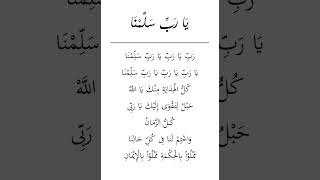 يَا رَبِّ سَلِّمْنَا
رَبِّ يَا رَبِّ يَا رَبِّ سَلِّمْنَا
يَا رَبِّ يَا رَبِّ يَا رَبِّ سَلِّمْنَا
كُلُّ الْهِدَايَةِ مِنْكَ يَا اللهُ
حَبْلُ لِتَقْوَى إِلَيْكَ يَا رَبِّى
كُلُّ الزَّمَانْ
وَاخْتِمْ لَنَا فِى كُلِّ حَالِنَا
مَمْلُوْأً بِالْحِكْمَةِ مَمْلُوْأً بِالْاِيْمَانِ